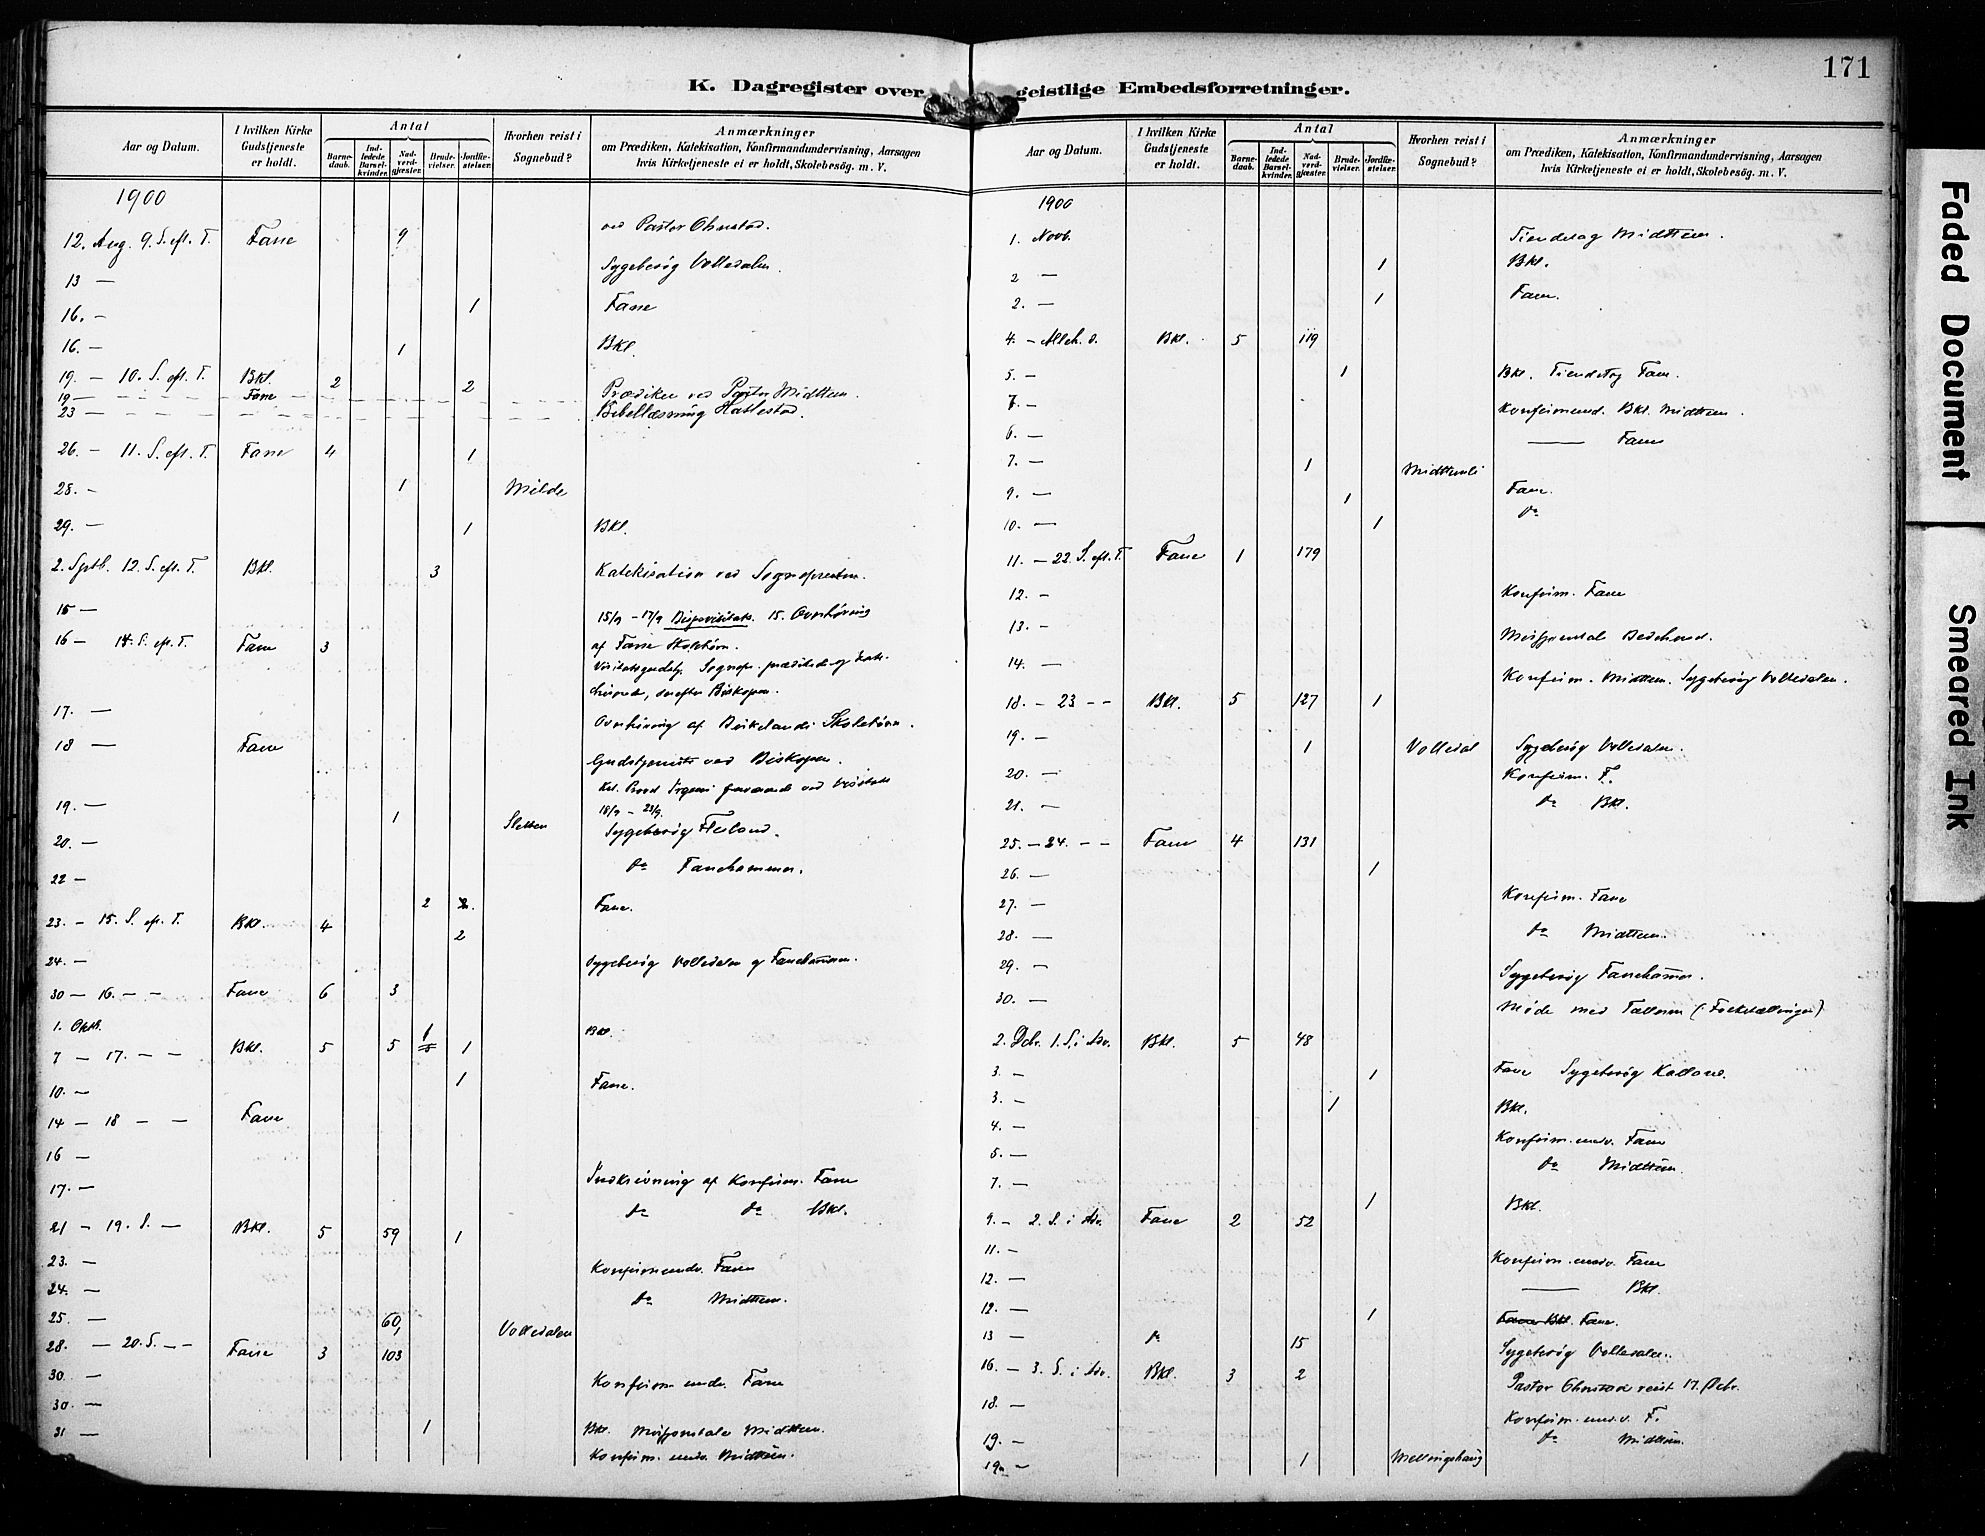 171
K. Dagregister over geistlige Embedsforretninger.
Aar og Datum. I hvilken Kirke Gudstjeneste er holdt. Antal Barne-daab. Ind-ledede Barsel-kvinder. Nad-verd-gjæster. Brude-vielser. Jordfæ-stelser. Hvorhen reist i Sognebud? Anmærkninger om Prædiken, Katekisation, Konfirmandundervisning, Aarsagen hvis Kirketjeneste ei er holdt, Skolebesøg. m. V.
1900
12. Aug. 9. S. eft. T. Fane 9 ved Pastor Ohnstad.
13 — Sygebesøg Volledalen.
16. - 1 Fane
16. — 1 Bkl.
19. — 10. S. eft. T. Bkl. 2 2
19 — Fane Prædiken ved Pastor Midttun.
23 — Bibellæsning Hatlestad.
26. — 11. S. eft. T. Fane 4 1
28. - 1 Milde
29. — 1 Bkl.
2. Sptb. 12. S. eft. T. Bkl. 3 Katekisation ved Sognepresten.
15 — 15/9 - 17/9 Bispevisitats. 15. Overhøring
16 — 14. S. eft. T. Fane 3 af Fane Skolebørn.
Visitatsgudstj. Sognepr. prædikede og kate-
hiserede, derefter Biskopen.
17. — Overhøring af Birkelands Skolebørn.
18 — Fane Gudstjeneste ved Biskopen.
18/9 - 23/9.
19. — 1 Sletten Sygebesøg Flesland.
20. — do Fanehammer.
22 — 2 Fane.
23. — 15. S. eft. T. Bkl. 4 2
24. — Sygebesøg Volledalen og Fanehammeren.
30 — 16. — — Fane 6 3
1. Oktb. 1 Bkl.
7 — 17. — — Bkl. 5 5 1
10. — 1 Fane.
14 — 18 — — Fane
16 — Indskrivning af Konfirm. Fane
17. — do do Bkl.
21 — 19. S. — Bkl. 5 59 1
23. — Konfirmundv. Fane
24. — do Midttun.
25. — 60, Volledalen
28. — 20. S. — — Fane 3 103
30 — Konfirm undv. Fane
30. —
31 — 1 Bkl. Midttun.
Konfirm. undv. Midttun.
Aar og Datum. I hvilken Kirke Gudstjeneste er holdt. Antal Barne-daab. Ind-ledede Barsel-kvinder. Nad-verd-gjæster. Brude-vielser. Jordfæ-stelser. Hvorhen reist i Sognebud? Anmærkninger om Prædiken, Katekisation, Konfirmandundervisning, Aarsagen hvis Kirketjeneste ei er holdt, Skolebesøg. m. V.
1900
1. Novb. Tiendetag Midttun.
2 — 1 Bkl.
2. — 1 Fane.
4. — Alleh. D. Bkl. 5 119
5. — 1 Bkl. Tiendetag Fane.
7. — Konfirmund. Bkl. Midttun.
6. — —— Fane
7. — 1 Midttunli
9. — 1 Fane.
10. — 1 do
11. — 22. S. eft. T. Fane 1 179
12. — Konfirm. Fane
13. —
14. — Konfirm. Midttun. Sygebesøg Volledalen.
18. — 23 — — Bkl. 5 127 1
19. — 1 Volledal Sygebesøg Volledalen.
20. — Konfirm. F.
21. — do Bkl.
25. — 24. — — Fane 4 131
26. — 1
27. — Konfirm. Fane
28. — do Midttun.
29. — Sygebesøg Fanehammer.
30. — Møde med Tællerne (: Folketællingen)
2. Dcbr. 1. S. i Adv. Bkl. 5 48
3. — 1 Fane Sygebesøg
3. — 1 Bkl.
4. — Konfirm. undv. Fane
5. — do Midttun.
7. — 1 Bkl.
9. — 2. S. i Adv. Fane 2 52
11. — Konfirm. undv. Fane
12. — —— Bkl.
12. — 1 Fane Bkl. Fane.
13 — do 15 Sygebesøg Volledalen.
16. — 3. S. i Adv. Bkl. 3 2 Pastor Ohnstad reist 17. Dcbr.
18. — Konfirm. und.v. F.
19. — do Midttun.
19. — 1
Faded Document
Smeared Ink